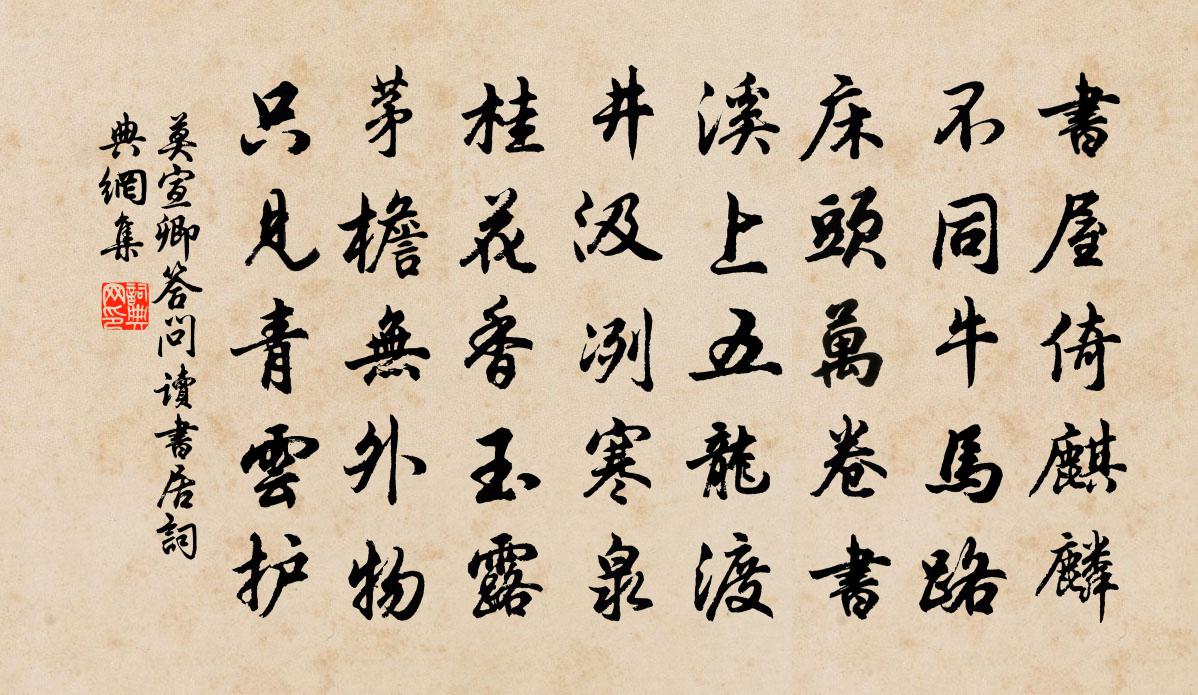 書屋倚麒麟
不同牛馬路
床頭萬卷書
溪上五龍渡
井汲冽寒泉
桂花香玉露
茅檐無外物
只見青雲护
莫宣卿答問讀書居詞
典網集
詞典
网印